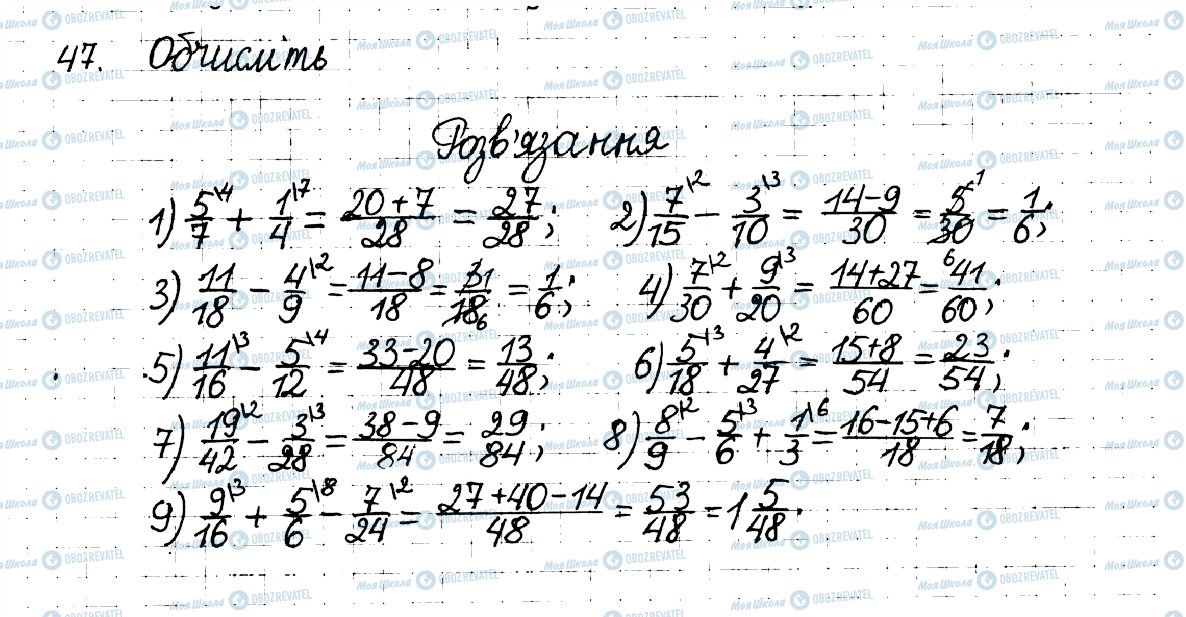 47. Обчисліть
Розв'язання
1) 5/7 \4 + 1/4 \7 = (20+7)/28 = 27/28; 2) 7/15 \2 − 3/10 \3 = (14−9)/30 = 5/30 = 1/6;
3) 11/18 − 4/9 \2 = (11−8)/18 = 3/18 = 1/6; 4) 7/30 \2 + 9/20 \3 = (14+27)/60 = 41/60;
5) 11/16 \3 − 5/12 \4 = (33−20)/48 = 13/48; 6) 5/18 \3 + 4/27 \2 = (15+8)/54 = 23/54;
7) 19/42 \2 − 3/28 \3 = (38−9)/84 = 29/84; 8) 8/9 \2 − 5/6 \3 + 1/3 \6 = (16−15+6)/18 = 7/18;
9) 9/16 \3 + 5/6 \8 − 7/24 \2 = (27+40−14)/48 = 53/48 = 1 5/48.
Моя Школа OBOZREVATEL